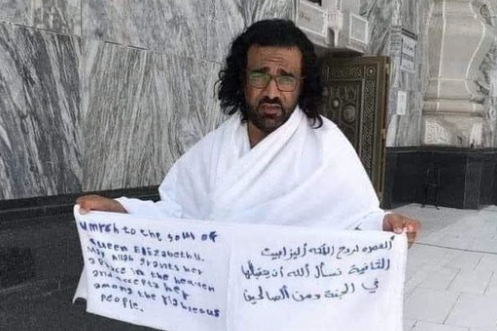 umrah to the soul of
Queen Elizabeth II,
May Allah grants her
a place in the heaven
and accepts her
among the Righteous
people.
العمره لروح الملكه أليزابيت
الثانية نسأل الله أن يتقبلها
في الجنة ومن الصالحين